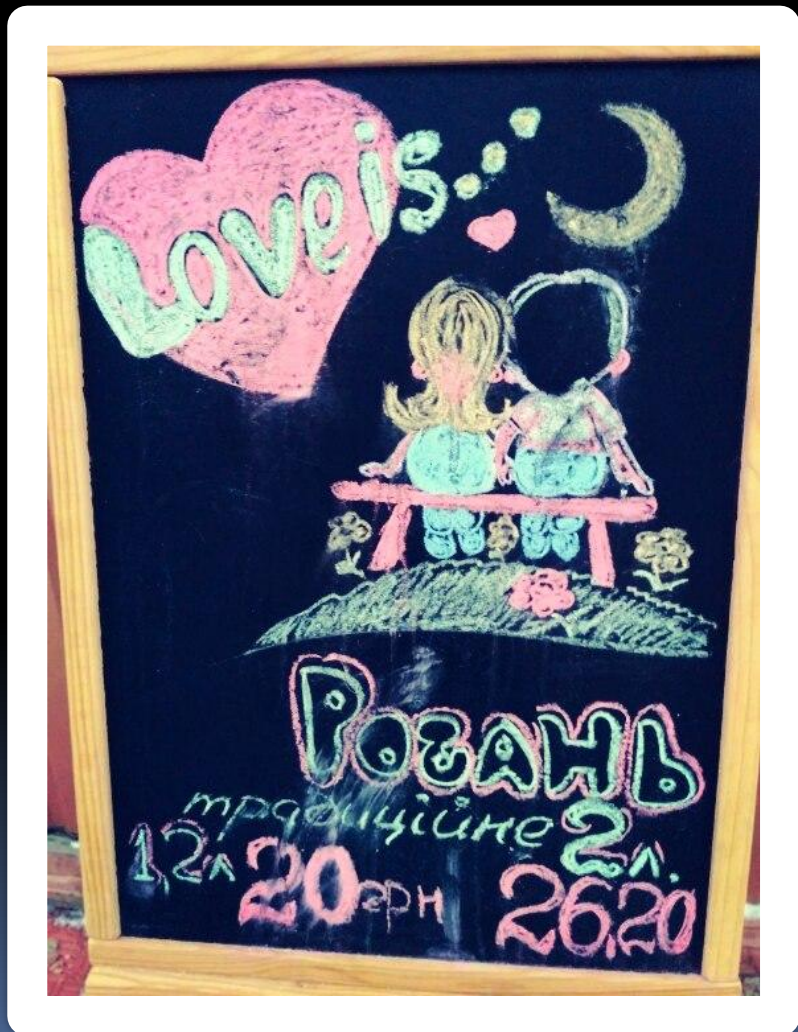 Love is...
Рогань
традиційне 2 л.
1,2 л 20 грн 26,20